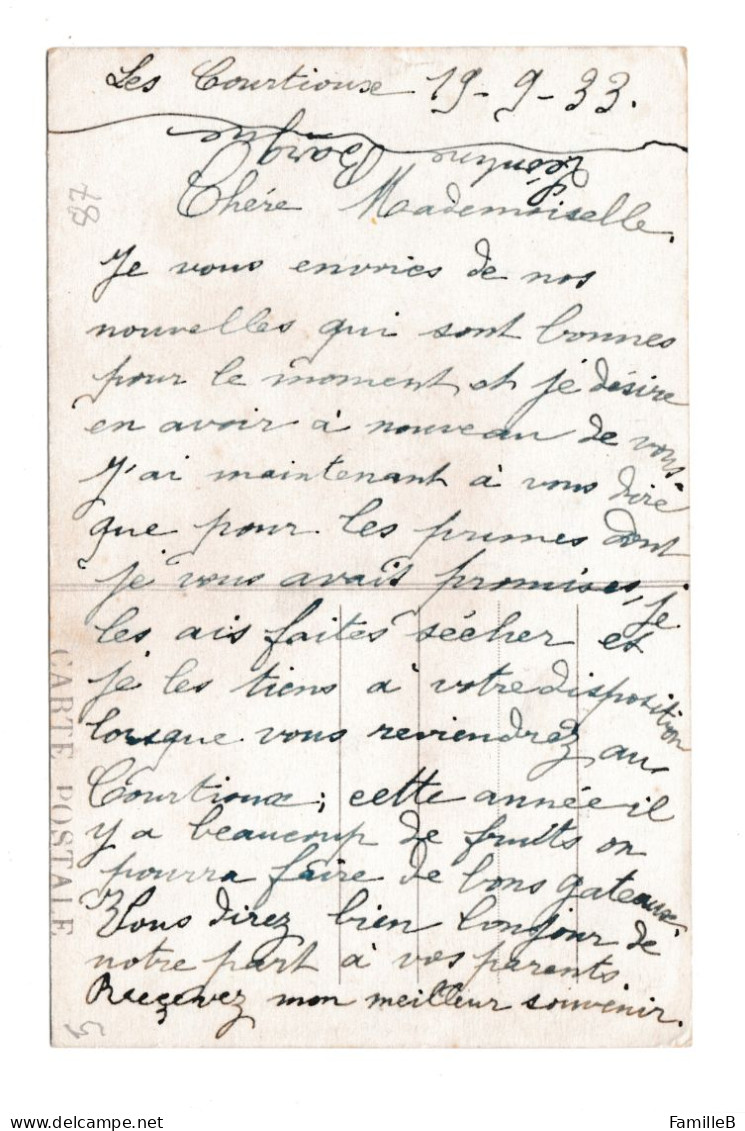 Les Courtioux 19-9-33.
Chére Mademoiselle.
Je vous envoies de nos
nouvelles qui sont bonnes
pour le moment, et je désire
en avoir à nouveau de vous.
J'ai maintenant à vous dire
que pour les prunes dont
je vous avait promises, je
les ais faites sécher et
je les tiens à votre disposition
lorsque vous reviendrez au
Courtioux; cette année il
y a beaucoup de fruits on
pourra faire de bons gateaux
Vous direz bien bonjour de
notre part à vos parents
Recevez mon meilleur souvenir.
87
CARTE POSTALE
5
FamilleB